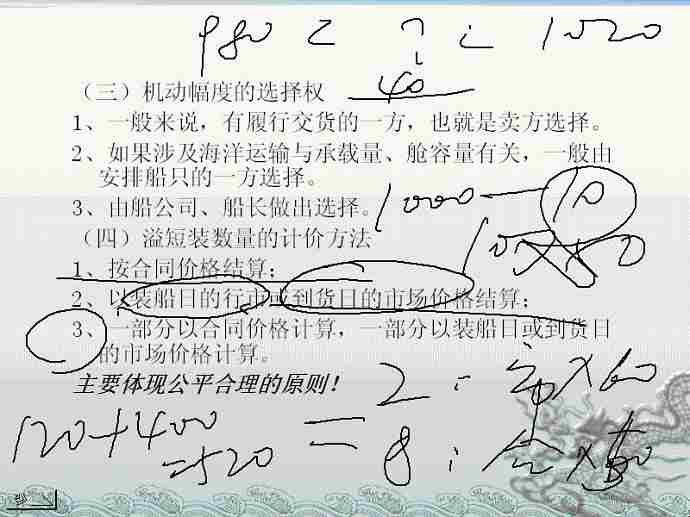 980 2 1020
40
（三）机动幅度的选择权
1、一般来说，有履行交货的一方，也就是卖方选择。
2、如果涉及海洋运输与承载量、舱容量有关，一般由
安排船只的一方选择。
3、由船公司、船长做出选择。
1000 — 10
（四）溢短装数量的计价方法
1、按合同价格结算；
2、以装船日的行市或到货日的市场价格结算；
3、一部分以合同价格计算，一部分以装船日或到货日
的市场价格计算。
主要体现公平合理的原则！
2： 市×60
120+400 = 8：合×50
=520